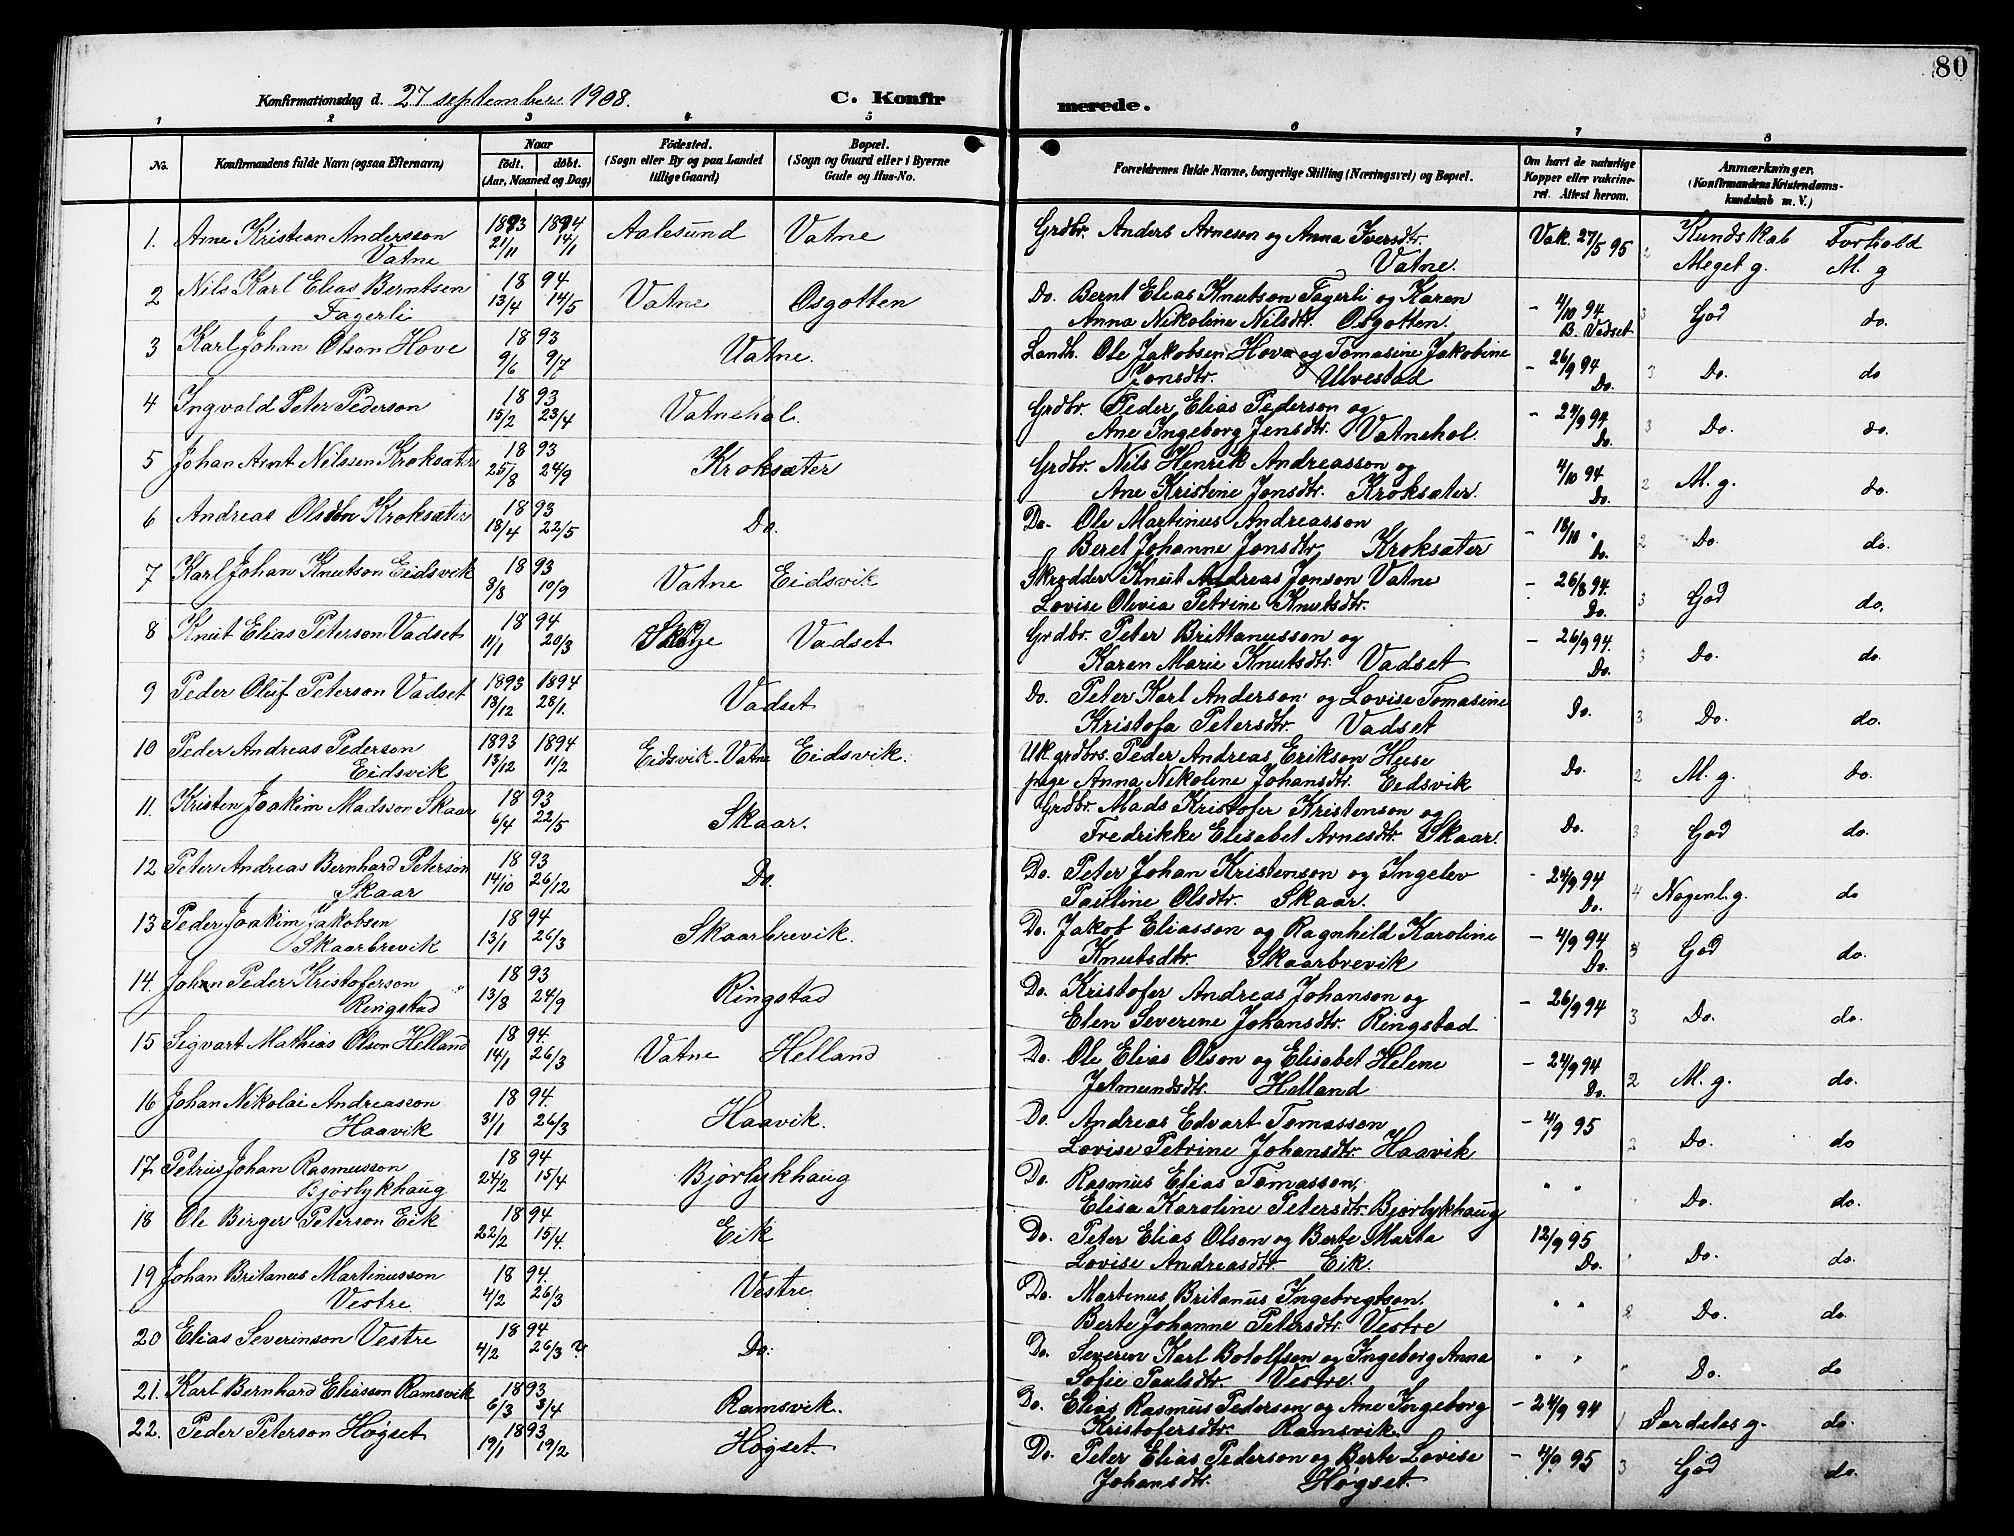 80
Konfirmationsdag d. 27 september 1908.
C. Konfirmerede.
1 2 3 4 5 6 7 8
No. Konfirmandens fulde Navn (ogsaa Efternavn) Naar født. døbt. (Aar, Maaned og Dag) Fødested. (Sogn eller By og paa Landet tillige Gaard) Bopæl. (Sogn og Gaard eller i Byerne Gade og Hus-No. Forældrenes fulde Navne, borgerlige Stilling (Næringsvei) og Bopæl. Om havt de naturlige Kopper eller vakcineret. Attest herom. Anmærkninger. (Konfirmandens Kristendomskundskab m. V.)
1. Arne Kristian Andersson 1893 1894 Aalesund Vatne Grdbr. Anders Arneson og Anna Iversdtr. Vak. 27/5 95 2 Kundskab Forhold
Vatne 21/11 14/1 Vatne. Meget g. M. g
2 Nils Karl Elias Berntsen 18 94 Vatne Osgotten Do. Bernt Elias Knutson Fagerli og Karen - 4/10 94 3 God do.
Fagerli 13/4 14/5 Anna Nikoline Nilsdtr. Osgotten. B. Vadset
3 Karl Johan Olson Hove 18 93 Vatne. Landh. Ole Jakobsen Hove og Tomasine Jakobine - 26/9 94 3 Do. do
9/6 9/7 Jonsdtr. Ulvestad Do.
4 Ingvald Peter Pederson 18 93 Vatnehol. Grdbr. Peder Elias Pederson og - 24/9 94 3 Do. do.
15/2 23/4 Ane Ingeborg Jensdtr. Vatnehol. Do.
5 Johan Arnt Nilssen Kroksæter 18 93 Kroksæter Grdbr. Nils Henrik Andreasson og 4/10 94 2 M. g. do.
25/8 24/9 Ane Kristine Jonsdtr. Kroksæter. Do.
6 Andreas Olsson Kroksæter 18 93 Do. Do. Ole Martinus Andreasson - 18/11 " 2 Do. do.
18/4 22/5 Beret Johanne Jonsdtr. Kroksæter Do.
7 Karl Johan Knutson Eidsvik 18 93 Vatne Eidsvik Skrædder Knut Andreas Jonson Vatne - 26/8 94. 3 God do.
8/8 10/9 Lovise Olivia Petrine Knutsdtr. Do.
8 Knut Elias Peterson Vadset 18 94 Vadset Grdbr. Peter Brittanusson og - 26/9 94. 3 Do. do.
11/1 20/3 Karen Marie Knutsdtr. Vadset Do.
9 Peder Oluf Peterson Vadset 1893 1894 Vadset Do. Peter Karl Anderson og Lovise Tomasine Do. 3 Do. do.
18/12 28/1. Kristofa Petersdtr. Vadset
10 Peder Andreas Pederson 1893 1894 Eidsvik-Vatne Eidsvik. Uk. grdbrs. Peder Andreas Erikson Huse Do. 2 M. g. do.
Eidsvik 13/12 11/2 pige Anna Nikoline Johansdtr. Eidsvik
11. Kristen Joakim Madsson Skaar 18 93 Skaar. Grdbr. Mads Kristofer Kristenson og Do. 3 God do.
6/4 22/5 Fredrikke Elisabet Arnesdtr. Skaar.
12 Peter Andreas Bernhard Peterson 18 93 Do. Do. Peter Johan Kristenson og Ingelev - 24/9 94 4 Nogenl. g. do
Skaar 14/10 26/12 Pauline Olsdtr. Skaar. Do.
13 Peder Joakim Jakobsen 18 94 Skaarbrevik. Do. Jakob Eliasson og Ragnhild Karoline - 4/9 94 3 God do.
Skaarbrevik 13/1 26/3 Knutsdtr. Skaarbrevik Do.
14. Johan Peder Kristoferson 18 93 Ringstad Do. Kristofer Andreas Johanson og - 26/9 94 3 Do. do.
Ringstad 13/8 24/9 Elen Severene Johansdtr. Ringstad
15 Sigvart Mathias Olson Helland 18 94. Vatne Helland Do. Ole Elias Olson og Elisabet Helene - 24/9 94 2 M. g. do.
14/1 26/3 Jetmundsdtr. Helland Do.
16 Johan Nikolai Andreasson 18 94 Haavik. Do. Andreas Edvart Tomasson - 4/9 95 2 Do. do
Haavik 31/1 26/3 Lovise Petrine Johansdtr. Haavik
17. Petrus Johan Rasmusson 18 94 Bjørlykhaug Do. Rasmus Elias Tomasson, " " " Do. do.
Bjørlykhaug 24/2 15/4 Elisa Karoline Petersdtr. Bjørlykhaug
18 Ole Birger Peterson Eik 18 94. Eik Do. Peter Elias Olson og Berte Marta 12/9 95 " Do. do.
22/2 15/4. Lovise Andreasdtr. Eik. Do.
19 Johan Britanus Martinusson 18 94. Vestre Do. Martinus Britanus Ingebregtson " " 2 Do. do
Vestre 4/2 26/3 Berte Johanne Petersdtr. Vestre
20 Elias Severinson Vestre 18 94 Do. Do. Severin Karl Botolfson og Ingeborg Anna " " " Do. do
4/2 26/3 Sofie Paulsdtr. Vestre.
21. Karl Bernhard Eliasson Ramsvik 18 93 Ramsvik. Do. Elias Rasmus Pederson og Ane Ingeborg - 24/9 94 1 Særdeles g. do.
6/3 3/4 Kristofersdtr. Ramsvik.
22. Peder Peterson Høgset 18 93 Høgset. Do. Peter Elias Pederson og Berte Lovise - 4/9 95 3 God do.
19/1 19/2 Johansdtr. Høgset.